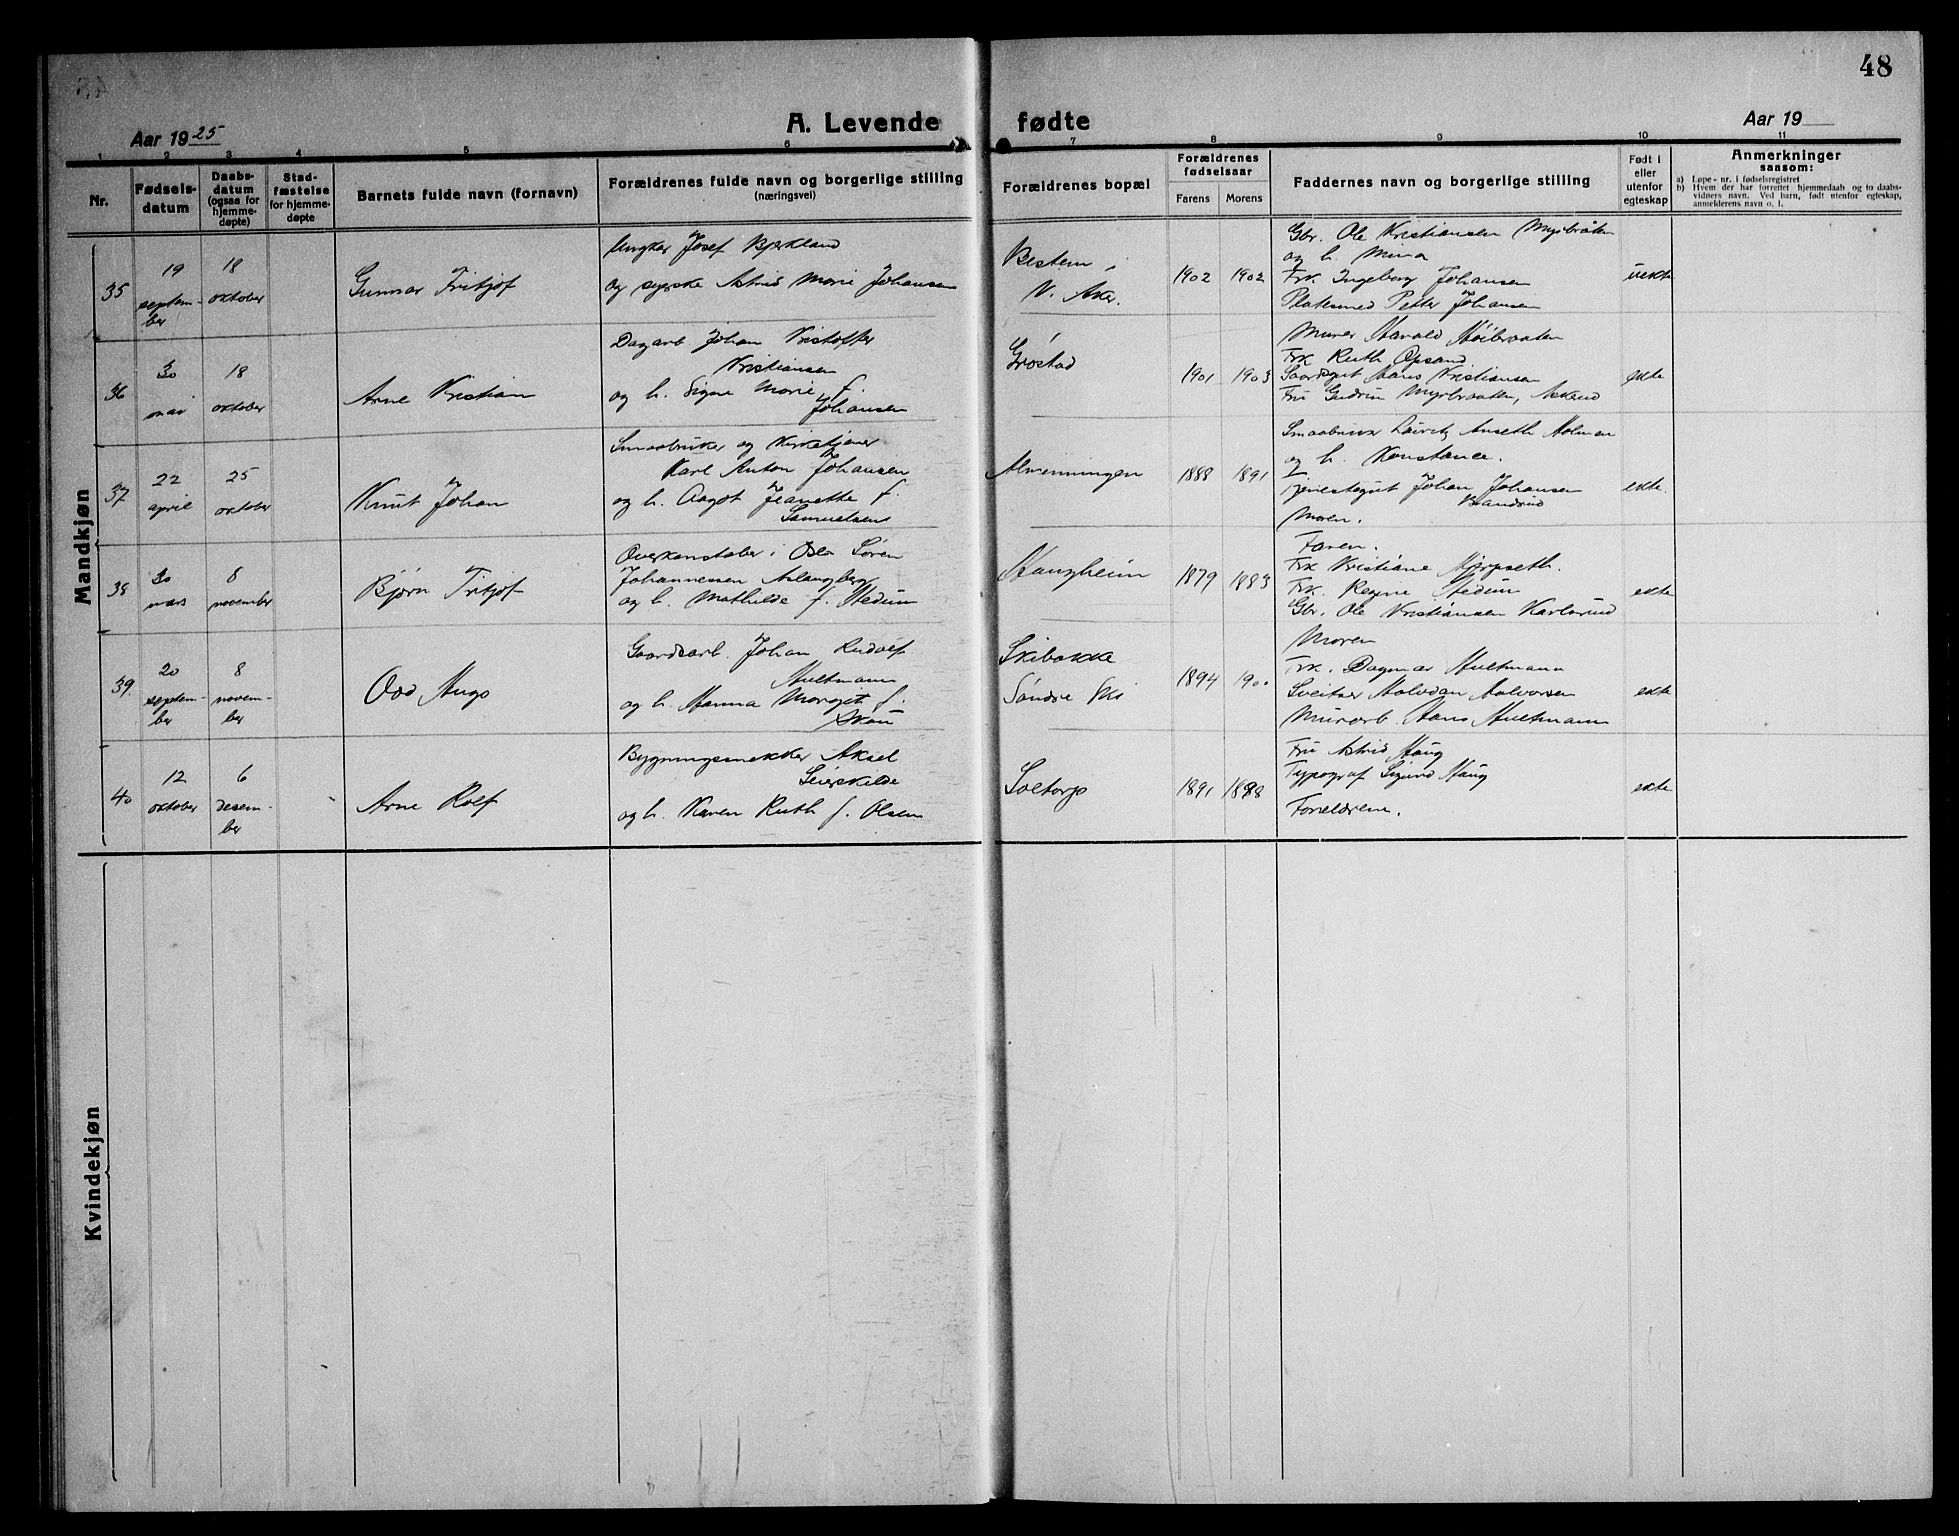 48
A. Levende fødte
Aar 1925
Aar 19
1 2 3 4 5 6 7 8 9 10 11
Nr.
Fødsels-
datum
Daabs-
datum
(ogsaa for
hjemme-
døpte)
Stad-
fæstelse
for hjemme-
døpte
Barnets fulde navn (fornavn)
Forældrenes fulde navn og borgerlige stilling
(næringsvei)
Forældrenes bopæl
Forældrenes
fødselsaar
Farens Morens
Faddernes navn og borgerlige stilling
Født i
eller
utenfor
egteskap
Anmerkninger
saasom:
a) Løpe-nr. i fødselsregistret
b) Hvem der har forrettet hjemmedaab og to daabs-
vidners navn. Ved barn, født utenfor egteskap,
anmelderens navn o. l.
Mandkjøn
35
19
septem-
ber
18
oktober
Gunnar Fritjof
Ungkar Josef Bjerkland
og syerske Astrid Marie Johansen
Bestem
V. Aker.
1902 1902
Gbr. Ole Kristiansen Myrbråten
og h. Mina
Frk Ingeborg Johansen
Platesmed Petter Johansen
uekte
36
30
mai
18
oktober
Arne Kristian
Dagarb Johan Kristoffer
Kristiansen
og h. Signe Marie f.
Johansen
Grøstad
1901 1903
Murer Harald Høibraaten
Frk Ruth Opsand
Gaardsgut Hans Kristiansen
Fru Gudrun Myrbraaten, Askerud
ekte
37
22
april
25
oktober
Knut Johan
Smaabruker og Kirketjener
Karl Anton Johansen
og h. Aagot Jeanette f.
Samuelsen
Almenningen
1888 1891
Smaabruker Lauritz Anseth Holman
og h. Konstance.
Tjenestegut Johan Johansen
Brandrud
Moren.
ekte.
38
30
mars
8
november
Bjørn Fritjof
Overkonstabel i Oslo Søren
Johannessen Aslangberg
og h. Mathilde f. Hedum
Haugheim
1879 1883
Faren.
Frk Kristiane Hjerpseth.
Frk. Regine Hedum
Gbr. Ole Kristiansen Karlsrud
ekte
39.
20
septem-
ber
8
novem-
ber
Odd Hugo
Gaardsarb. Johan Rudolf
Hultmann
og h. Hanna Margit f.
Skau
Skibakke
Søndre Ski
1894 1900
Moren
Frk. Dagmar Hultmann
Sveitser Halvdan Halvorsen
Murarb. Hans Hultmann
ekte
40
12
oktober
6
desem-
ber
Arne Rolf
Bygningssnekker Aksel
Seierskilde
og h. Karen Ruth f. Olsen
Soltorp
1891 1888
Fru Astrid Haug
Typograf Sigurd Haug
Foreldrene.
ekte
Kvindekjøn